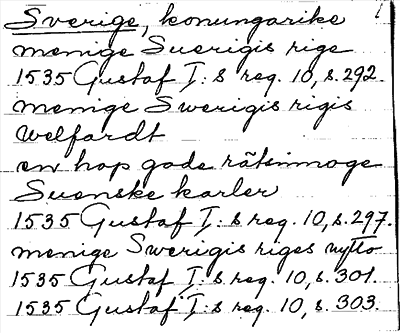 Sverige, konungarike
menige Suerigis rige
1535 Gustaf I:s reg. 10, s. 292.
menige Swerigis rigis
welfardt
en hop gode rätsinnoge
Suenske karler
1535 Gustaf I:s reg. 10, s. 297.
menige Swerigis riges nytto
1535 Gustaf I:s reg. 10, s. 301.
1535 Gustaf I:s reg. 10, s. 303.